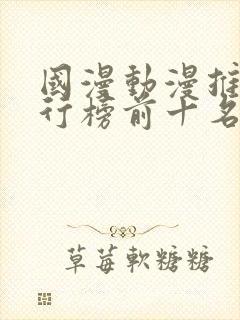 國漫動漫推
行榜前十名
草莓軟糖糖